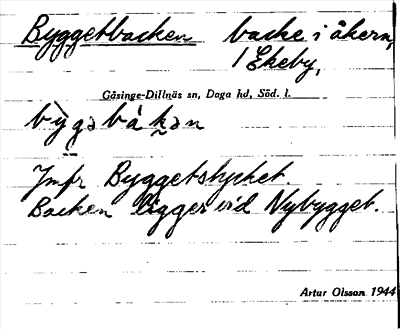 Byggetbacken backe i åkern,
1 Ekeby,
Gåsinge-Dillnäs sn, Daga hd, Söd. l.
bỳgəbàkən
Jmfr Byggetstycket.
Backen ligger vid Nybygget.
Artur Olsson 1944